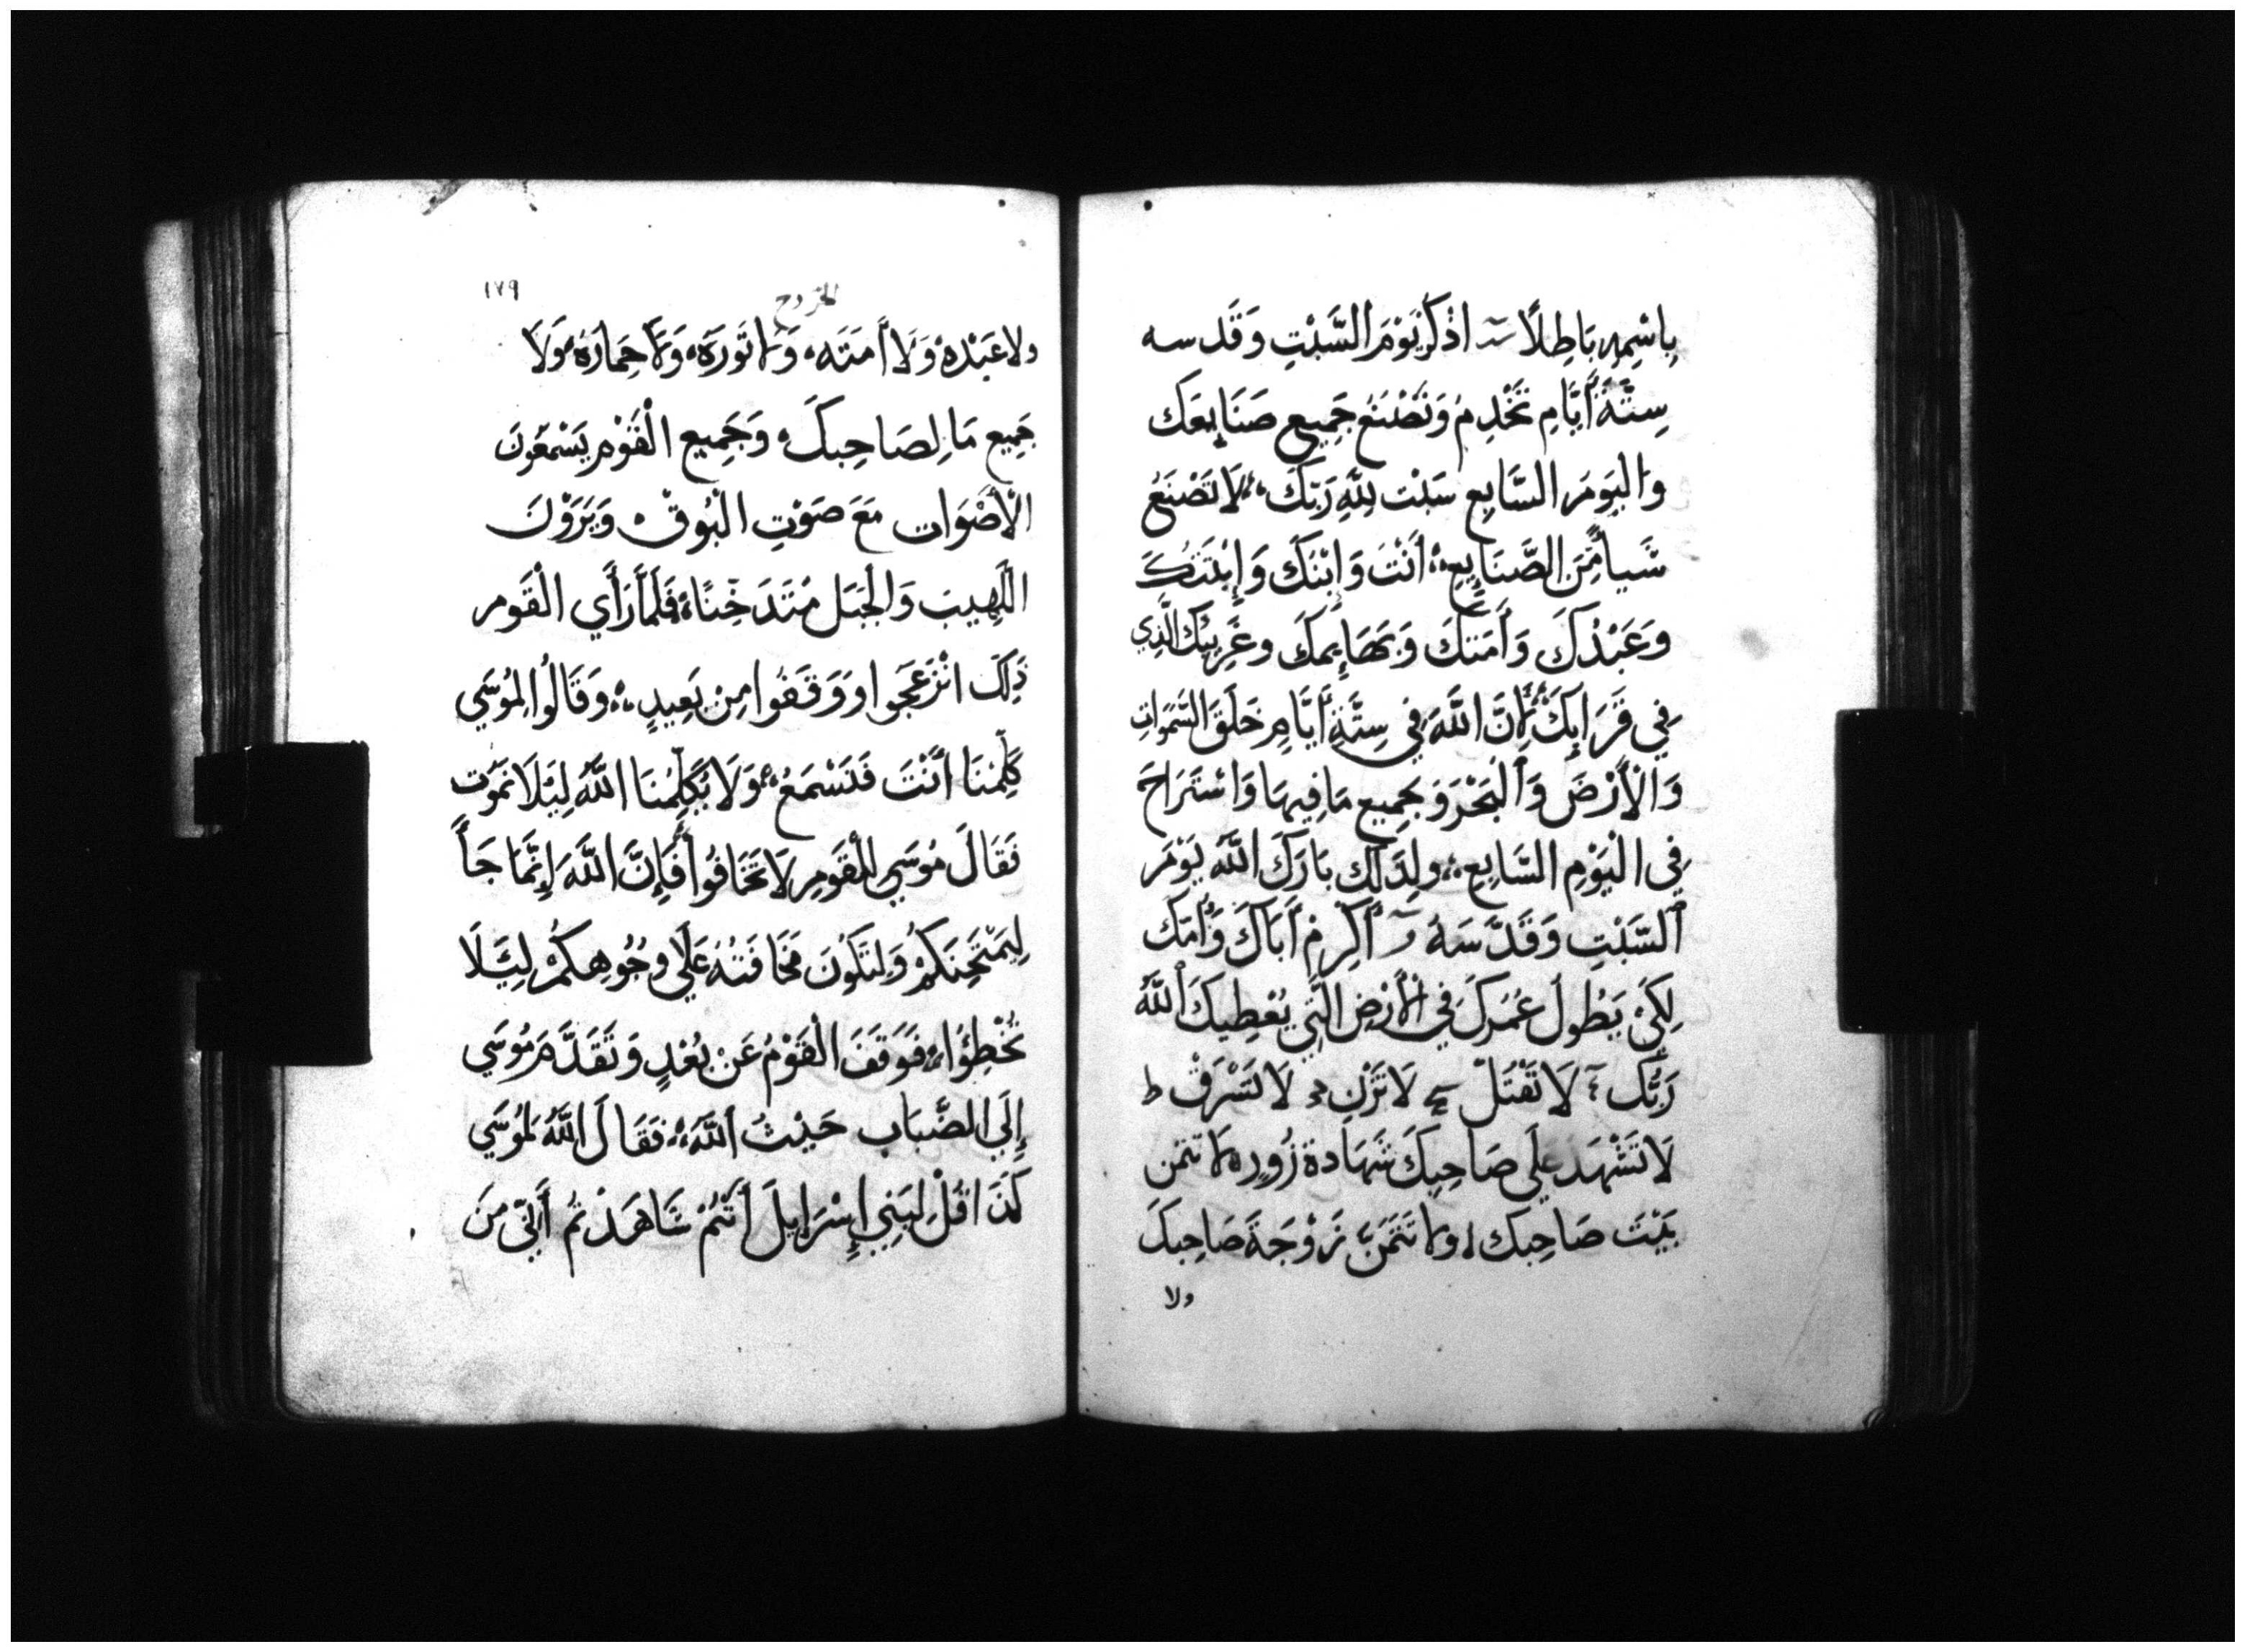 بِاسْمِهِ بَاطِلًا اذْكُرْ يَوْمَ السَّبْتِ وَقَدسه
سِتَّةَ أَيَّامٍ تَخْدِمُ وَتَصْنَعُ جَمِيع صَنَايِعَك
وَاليَومَ السَّابِع سَبْت لِلَّهِ رَبِّكَ، لَا تَصْنَعُ
شَيأً مِّنَ الصَّنَايِعِ، أَنْتَ وَابْنَكَ وَابْنَتَكَ
وَعَبْدُكَ وَأَمَتكَ وَبَهَايِمكَ وغَرِيبَك الَّذِي
فِي قَرَايِكَ لِأَنَّ اللَّهَ فِي سِتَّةِ أَيَّامٍ خَلَقَ السَّمَوَاتِ
وَالْأَرْضَ وَالْبَحْرَ وَجَمِيع مَا فِيهَا وَاسْتَرَاحَ
فِي الْيَوْمِ السَّابِعِ، ولِذَلِكَ بَارَكَ اللَّه يَوْمَ
السَّبْتِ وَقَدَّسَهُ أَكْرِمْ أَبَاكَ وَأُمّكَ
لِكَيْ يَطُولَ عُمْرُكَ فِي الْأَرْضِ الَّتِي يُعْطِيكَ اللَّهُ
رَبُّك لَا تَقْتُلْ لَا تَزْنِ لَا تَسْرِقْ ط
لَا تَشْهَدَ عَلَى صَاحِبِكَ شَهَادةَ زُورٍ لا تتمن
بَيْتَ صَاحِبك ولا تَتَمَنَّ زَوْجَةَ صَاحِبكَ
ولا
١٧٩
الخروج
ولا عَبْدهُ وَلَا أَمَتَه، وَلا ثَورَهُ، وَلَا حِمارَهُ، وَلَا
جَمِيع مَا لِصَاحِبكَ، وَجَمِيع الْقَوْم يَسْمَعُونَ
الْأَصْوَات مَعَ صَوْتِ الْبُوقْ، وَيَرَوْنَ
اللَّهِيبَ وَالْجَبَل مُتَدَخِّنًا، فَلَمَّا رَأَي الْقَوم
ذَلِكَ انْزَعَجُوا وَوَقَفُوا مِنْ بَعِيدٍ، وَقَالُوا لِمُوسَي
كَلِّمْنَا أَنْتَ فَنَسْمَعُ، وَلَا يُكَلِّمُنَا اللَّهُ لِيَلَا نَمُوت
فَقَالَ مُوسَي لِلْقَوْمِ لَا تَخَافُوا فَإِنَّ اللَّهَ إِنَّمَا جَأَ
لِيَمْتَحِنَكُمْ وَلِتَكُونَ مَخَافَتُهُ عَلَى وجُوهِكُمْ لِيَلَا
تُخْطِؤُا، فَوَقَفَ الْقَوْمُ عَنْ بُعْدٍ وَتَقَدَّمَ مُوسَي
إِلَي الضَّبَاب حَيْثُ اللَّهَ، فَقَالَ اللَّهُ لِمُوسَي
كَذَا قُلْ لِبَنِي إِسْرَايِلَ أَنْتُمْ شَاهَدْتُم أَنِّي مِنَ